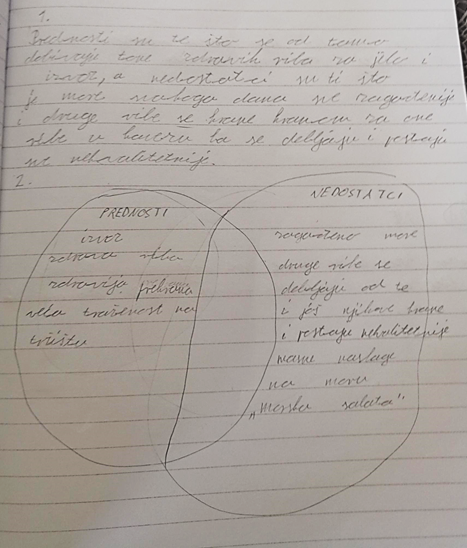 1.
Prednosti su te što se od tamo
dobivaju tone zdravih riba za jelo i
izvoz, a nedostatci su ti što
je more svakoga dana sve zagađenije
i druge ribe se hrane hranom za one
ribe u kavezu pa se debljaju i postaju
ne kvalitetnije.
2.
PREDNOSTI
izvoz
zdrava riba
zdravija prehrana
velika traženost na
tržištu
NEDOSTATCI
zagađeno more
druge ribe se
debljaju od te
i još njihove hrane
i postaju nekvalitetnije
masne naslage
na moru
„morska salata"